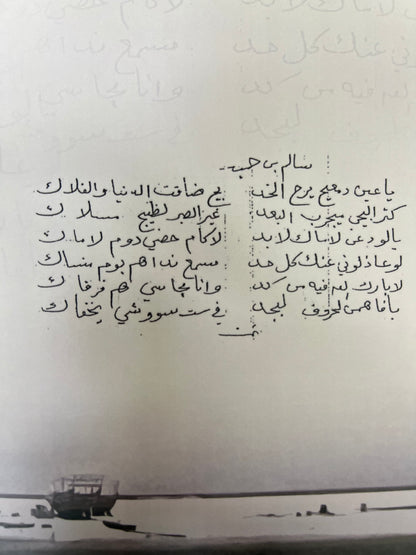 سالم بن حب
يا عين دمعچ يرح الخد يچ ضاقت الدنيا والفلاك
كثر البچي ميجرب البعد غير الصبر لچ مسلاك
يالود عن لاماك لابد لاكام حضي دوم لاماك
لوعاذلوني عنك كل حد سمع نداهم يوم
لابارك الله فيه من كد وانا مجاسي هم فرقاك
يافاهمن الحروف لبجد في ست سووشي يخفاك
تمت